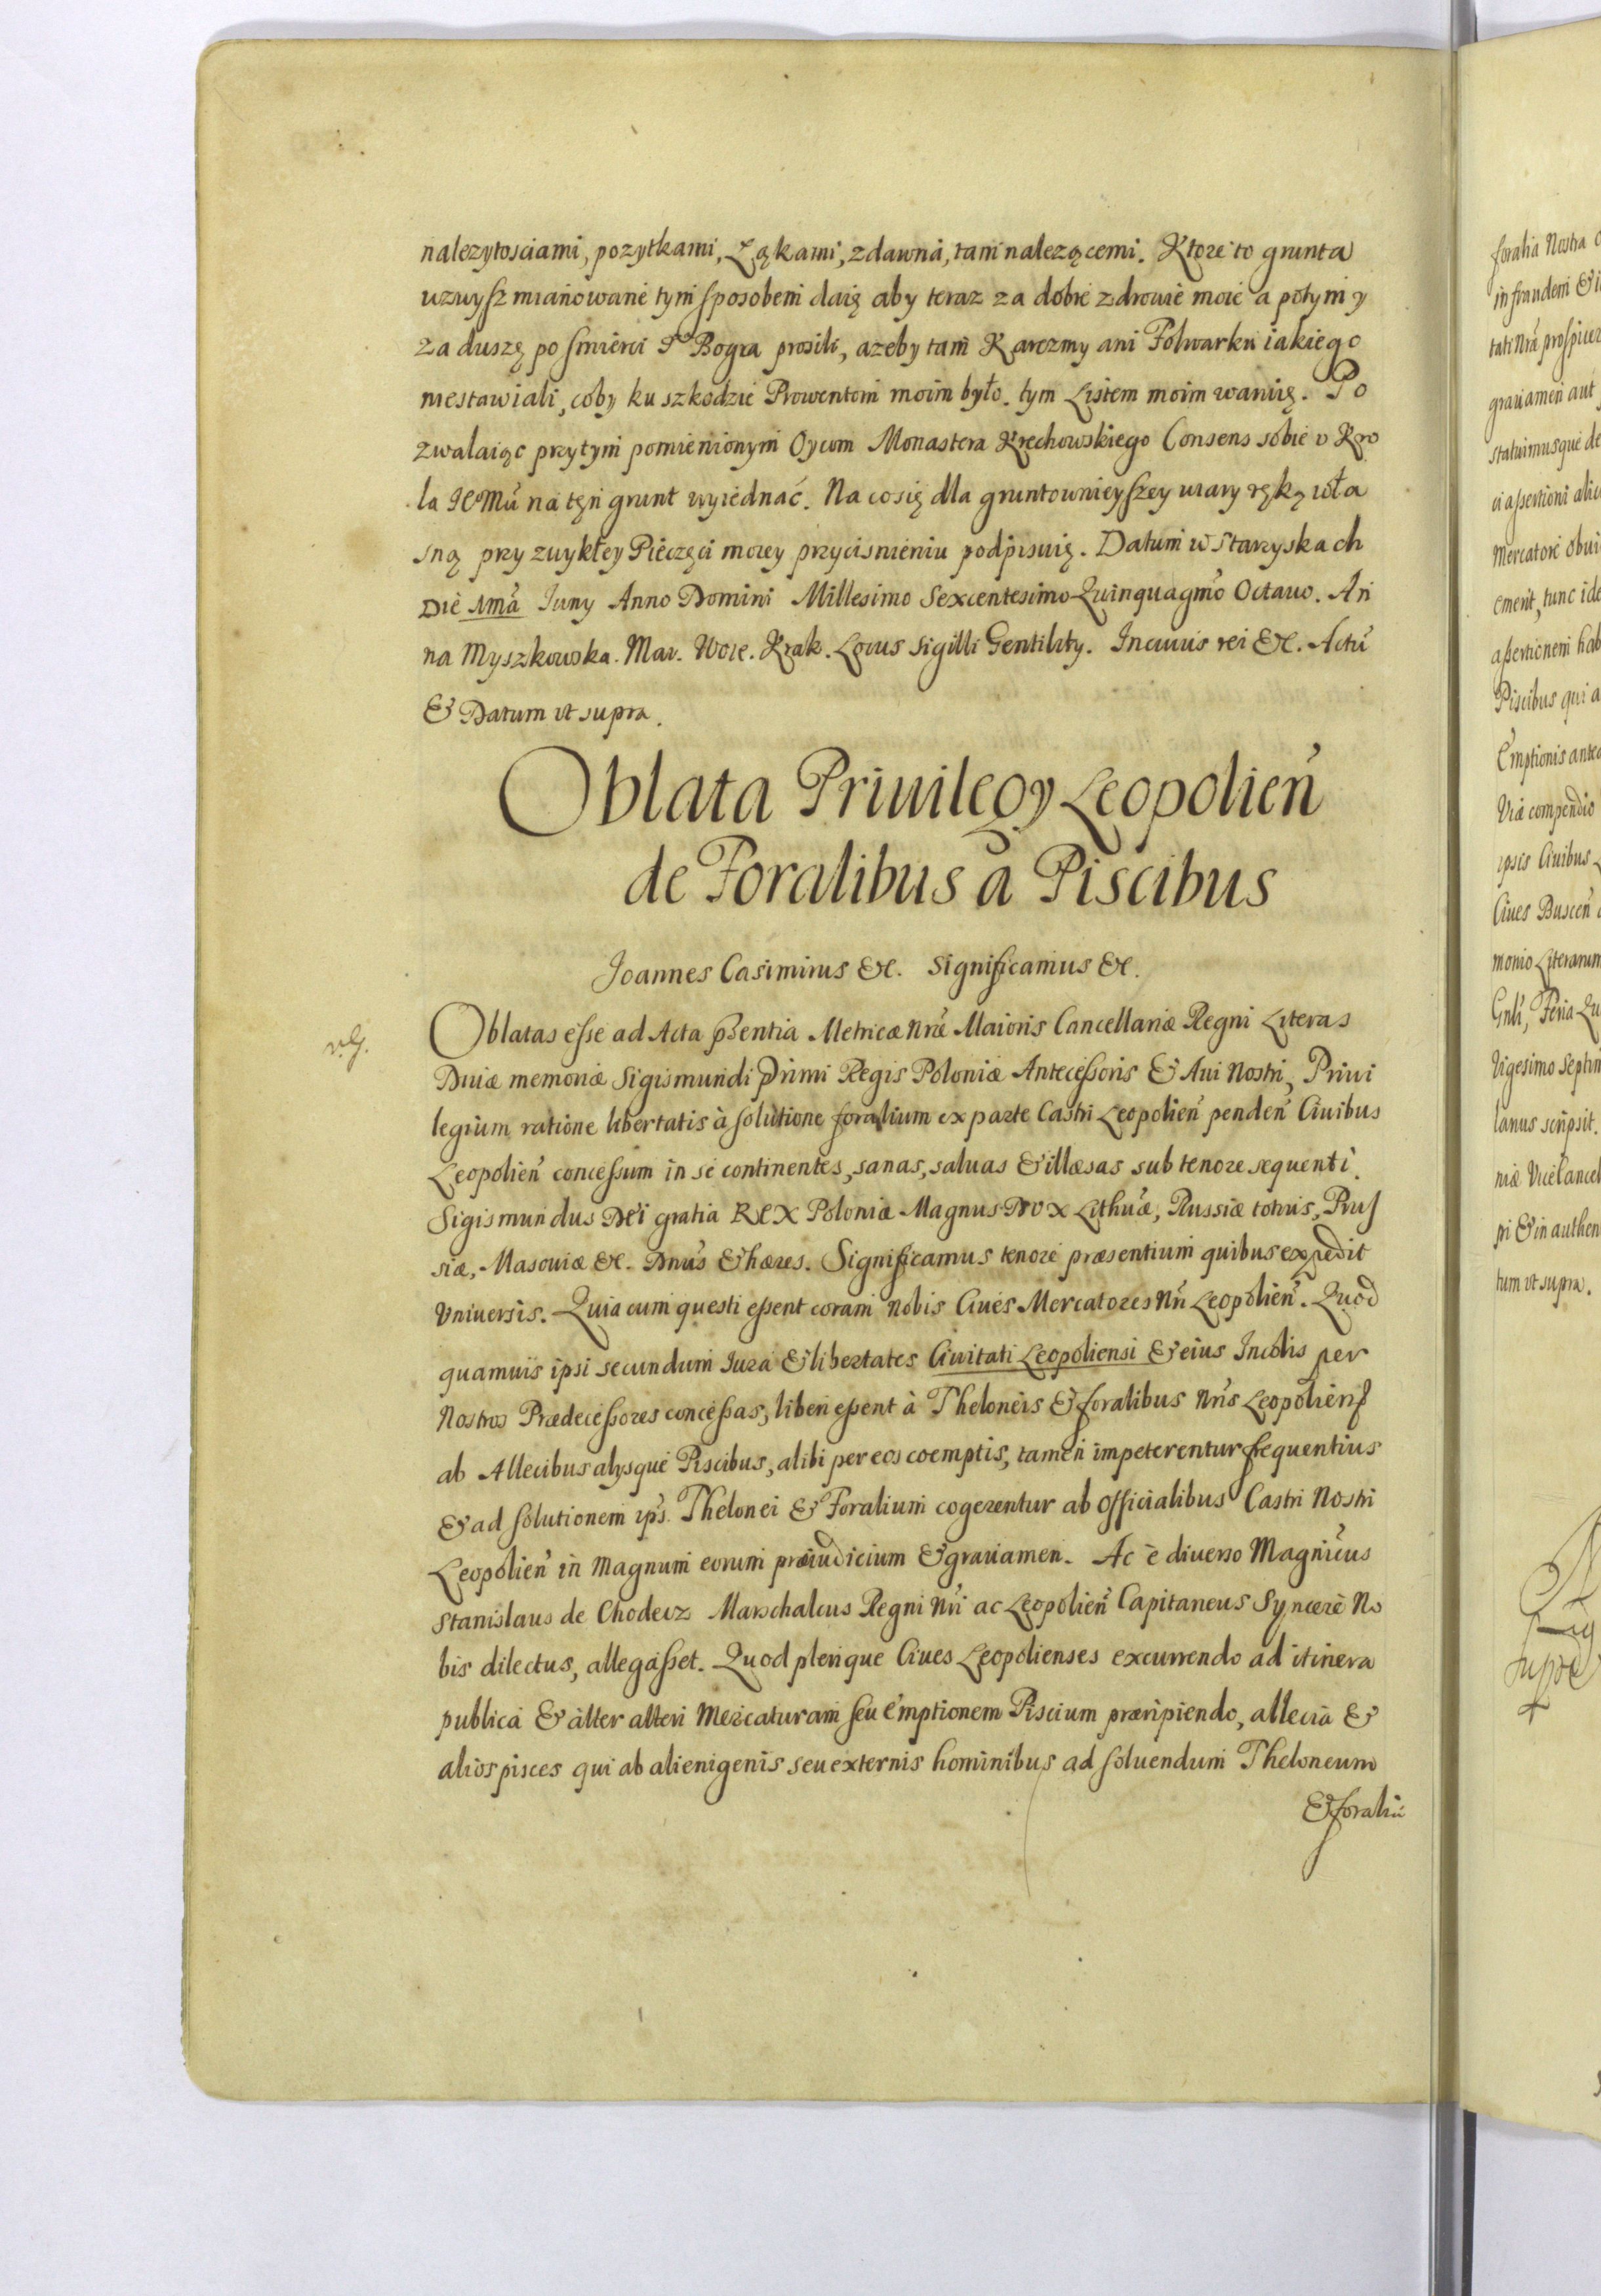 nalezytosciami, pozytkami, Łąkami, zdawna, tam nalezącemi. Ktore to grunta
uzwysz mianowane tym sposobem daię aby teraz za dobre zdrowie moie a potym y
za duszę po smierci Pa Boga prosili, azeby tam Karczmy ani Folwarku iakiego
niestawiali, coby ku szkodzie Prowentom moim było. tym Listem moim waruię. Po
zwalaiąc przytym pomienionym Oycom Monastera Krechowskiego Consens sobie v Kro
la JeoMu na tęn grunt wyiednać. Na co się dla gruntownieyszey wiary ręką wła
sną przy zwykłey Pieczęci moiey przycisnieniu podpisuię. Datum w Staryskach
Die 1ma Juny Anno Domini Millesimo Sexcentesimo Quinquagmo Octauo. An
na Myszkowska. Mar. Woie. Krak. Locus sigilli Gentility. In cuius rei &c. Actu
& Datum vt supra.
Oblata Priuilegy Leopolien
de Foralibus a Piscibus
Joannes Casimirus &c. Significamus &c.
Oblatas esse ad Acta pñtia Metricæ Nræ Maioris Cancellariæ Regni Literas
Diuæ memoriæ Sigismundi Primi Regis Poloniæ Antecessoris & Aui Nostri, Priui
legium ratione libertatis à solutione foralium ex parte Castri Leopolien penden Ciuibus
Leopolien concessum in se continentes, sanas, saluas & illæsas sub tenore sequenti.
Sigismundus Dei gratia Rex Poloniæ Magnus Dux Lithuæ, Russiæ totius, Prus
siæ, Masouiæ &c. Dnus & hæres. Significamus tenore præsentium quibus expedit
Vniuersis. Quia cum questi essent coram Nobis Ciues Mercatores Nri Leopolien. Quod
quamuis ipsi secundum Jura & libertates Ciuitati Leopoliensi & eius Incolis per
Nostros Prædecessores concessas, liberi essent à Theloneis & foralibus Nris Leopolien
ab Allecibus alysque Piscibus, alibi per eos coemptis, tamen impeterentur frequentius
& ad solutionem ips. Thelonei & Foralium cogerentur ab officialibus Castri Nostri
Leopolien in Magnum eorum præiudicium & grauamen. Ac è diuerso Magnicus
Stanislaus de Chodecz Marschalcus Regni Nri ac Leopolien Capitaneus Syncerè No
bis dilectus, allegasset. Quod plerique Ciues Leopolienses excurrendo ad itinera
publica & alter alteri Mercaturam seu emptionem Piscium præripiendo, allecia &
alios pisces qui ab alienigenis seu externis hominibus ad soluendum Theloneum
& foraliũ